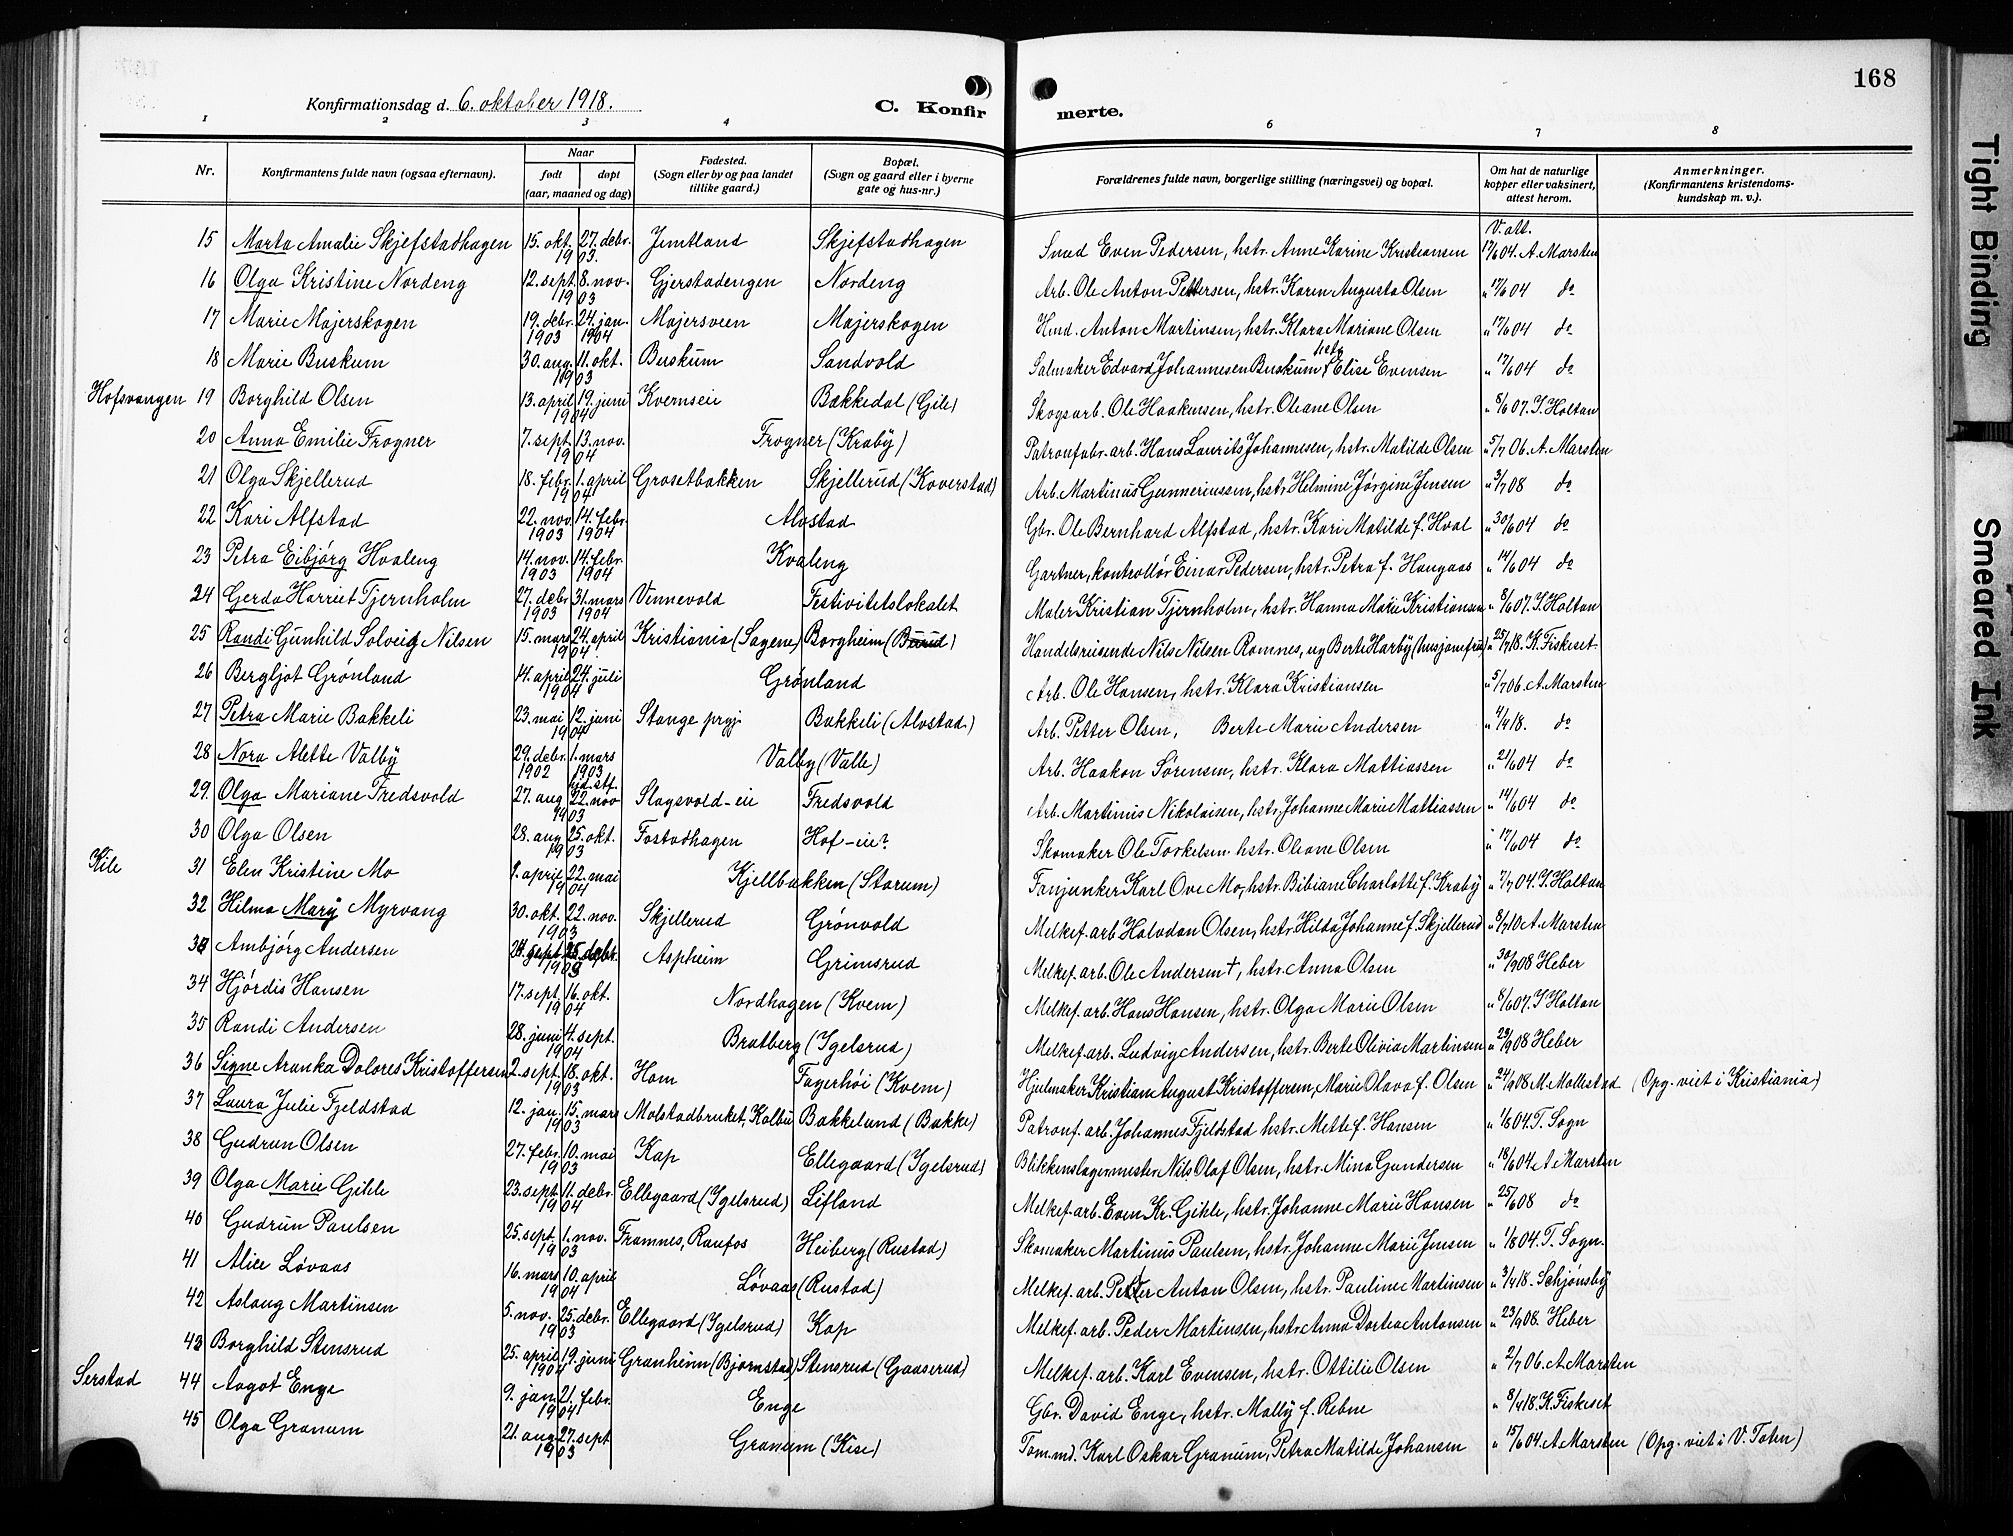 168
Konfirmationsdag d. 6. oktober 1918.
C. Konfir merte.
1 2 3 4 6 7 8
Nr. Konfirmantens fulde navn (ogsaa efternavn). Naar født døpt (aar, maaned og dag) Fødested. (Sogn eller by og paa landet tillike gaard.) Bopæl. (Sogn og gaard eller i byerne gate og hus-nr.) Forældrenes fulde navn, borgerlige stilling (næringsvei) og bopæl. Om hat de naturlige kopper eller vaksinert, attest herom. Anmerkninger. (Konfirmantens kristendomskundskap m. v.).
15 Marta Amalie Skjefstadhagen 15. okt. 27. debr. 1903. Jemtland Skjefstadhagen Smed Even Pedersen, hstr. Anne Karine Kristiansen V. att. 17/6 04. A. Marsten
16 Olga Kristine Nordeng 12. sept. 8. nov. 1903 Gjerstadengen Nordeng Arb. Ole Anton Pettersen, hstr. Karen Augusta Olsen " 17/6 04 do
17 Marie Majerskogen 19. debr. 1903 24. jan. 1904 Majersveen Majerskogen Hmd. Anton Martinsen, hstr. Klara Mariane Olsen " 17/6 04 do
18 Marie Buskum 30. aug. 11. okt. 1903 Buskum Sandvold Salmaker Edvard Johannesen Buskum, hstr. Elise Evensen " 17/6 04 do
Hofsvangen 19 Borghild Olsen 13. april 19. juni 1904 Kvernseie Bakkedal (Gile) Skogsarb. Ole Haakensen, hstr. Oleane Olsen " 8/6 07. I. Holtan
20 Anna Emilie Frogner 7. sept. 13. nov. 1904 Frogner (Kraby) Patronfabr. arb. Hans Laurits Johannesen, hstr. Matilde Olsen " 5/7 06. A. Marsten
21 Olga Skjellerud 18. febr. 1. april 1904 Grosetbakken Skjellerud (Koverstad) Arb. Martinus Gunneriussen, hstr. Helmine Jørgine Jensen " 3/7 08 do
22 Kari Alfstad 22. nov. 1903 14. febr. 1904 Alvstad Gbr. Ole Bernhard Alfstad, hstr. Kari Matilde f. Hval " 30/6 04 do
23 Petra Eibjørg Hvaleng 14. nov. 1903 14. febr. 1904 Kvaleng Gartner, kontrollør Einar Pedersen, hstr. Petra f. Haugaas " 14/6 04 do
24 Gerda Harriet Tjernholm 27. debr. 1903 31. mars 1904 Vennevold Festivitetslokalet Maler Kristian Tjernholm, hstr. Hanna Marie Kristiansen " 8/6 07. I. Holtan
25 Randi Gunhild Solveig Nilsen 15. mars 24. april 1904 Kristiania (Sagene) Borgheim (Burud) Handelsreisende Nils Nilsen Romnes, ug Berte Harby (husjomfru) " 25/7 18. K. Fiskeset
26 Bergljot Grønland 14. april 24. juli 1904 Grønland Arb. Ole Hansen, hstr. Klara Kristiansen " 5/7 06. A. Marsten
27 Petra Marie Bakkeli 23. mai 12. juni 1904 Stange prgj. Bakkeli (Alvstad) Arb. Petter Olsen, Berte Marie Andersen " 4/9 18. do
28 Nora Alette Valby 29. debr. 1902 1. mars 1903 Valby (Valle) Arb. Haakon Sørensen, hstr. Klara Mattiassen " 21/6 04 do
29. Olga Mariane Fredsvold 27. aug. 22. nov 1903 Slagsvold-eie Fredsvold Arb. Martinius Nikolaisen, hstr. Johanne Marie Mattiassen " 14/6 04 do
30 Olga Olsen 28. aug. 25. okt. 1903 Fostadhagen Hof-eie Skomaker Ole Torkelsen hstr. Oleane Olsen " 17/6 04 do
Kile 31 Elen Kristine Mo 8. april 22. mai 1904 Kjellbakken (Starum) Fanjunker Karl Ove Mo, hstr. Bibiane Charlotte f. Kraby " 7/7 04. I. Holtan
32 Hilma Mary Myrvang 30. okt. 22. nov. 1903 Skjellerud Grønvold Melkef. arb. Halvdan Olsen, hstr. Hilda Johanne f. Skjellerud " 8/7 10 A. Marsten
33 Ambjørg Andersen 24. sept. 25. debr. 1903 Aspheim Grimsrud Melkef. arb. Ole Andersen †, hstr. Anna Olsen " 30/9 08 Heber
34 Hjørdis Hansen 17. sept. 16. okt. 1904 Nordhagen (Kvem) Melkef. arb. Hans Hansen, hstr. Olga Marie Olsen " 8/6 07. I. Holtan
35 Randi Andersen 28. juni 4. sept. 1904 Bratberg (Igelsrud) Melkef. arb. Ludvig Andersen, hstr. Berte Olivia Martinsen " 29/9 08 Heber
36 Signe Aranka Dolores Kristoffersen 2. sept. 18. okt. 1903 Ham Fagerhøi (Kvem) Hjulmaker Kristian August Kristoffersen, Marie Olava f. Olsen " 24/9 08 M. Mollestad (Opg. viet i Kristiania)
37 Laura Julie Fjeldstad 12. jan. 15. mars 1903 Molstadbruket, Kolbu Bakkelund (Bakke) Patronf. arb. Johannes Fjeldstad hstr. Mette f. Hansen " 1/8 04. T. Sogn
38 Gudrun Olsen 27. febr. 10. mai 1903 Kap Ellegaard (Igelsrud) Blikkenslagermester Nils Olaf Olsen, hstr. Mina Gundersen " 18/6 04 A. Marsten
39 Olga Marie Gihle 23. sept. 11. debr. 1904 Ellegaard (Igelsrud) Lifland Melkef. arb. Even Kr. Gihle, hstr. Johanne Marie Hansen " 25/6 08 do
40 Gudrun Paulsen 25. sept. 1. nov. 1903 Framnes, Raufos Heiberg (Rustad) Skomaker Martinius Paulsen, hstr. Johanne Marie Jensen " 1/8 04. T. Sogn.
41 Alice Løvaas 16. mars 10. april 1904 Løvaas (Rustad) Melkef. arb. Petter Anton Olsen, hstr. Pauline Martinsen " 3/4 18. Schjønsby
42 Aslaug Martinsen 5. nov. 25. debr. 1903 Ellegaard (Igelsrud) Kap Melkef. arb. Peder Martinsen, hstr. Anna Dortea Antonsen " 23/9 08. Heber
43 Borghild Stensrud 25. april 19. juni 1904 Granheim (Bjørnstad) Stensrud (Gaaserud) Melkef. arb. Karl Evensen, hstr. Ottilie Olsen " 2/7 06. A. Marsten
Serstad 44 Aagot Enge 9. jan. 21. febr. 1904 Enge Gbr. David Enge, hstr. Mally f. Rebne " 8/4 18. K. Fiskeset
45 Olga Granum 21. aug. 27. sept 1903 Granum (Kise) Tom.md. Karl Oskar Granum, Petra Matilde Johansen " 15/6 04. A Marsten (Opg. viet i V. Toten)
Tight Binding
Smeared Ink